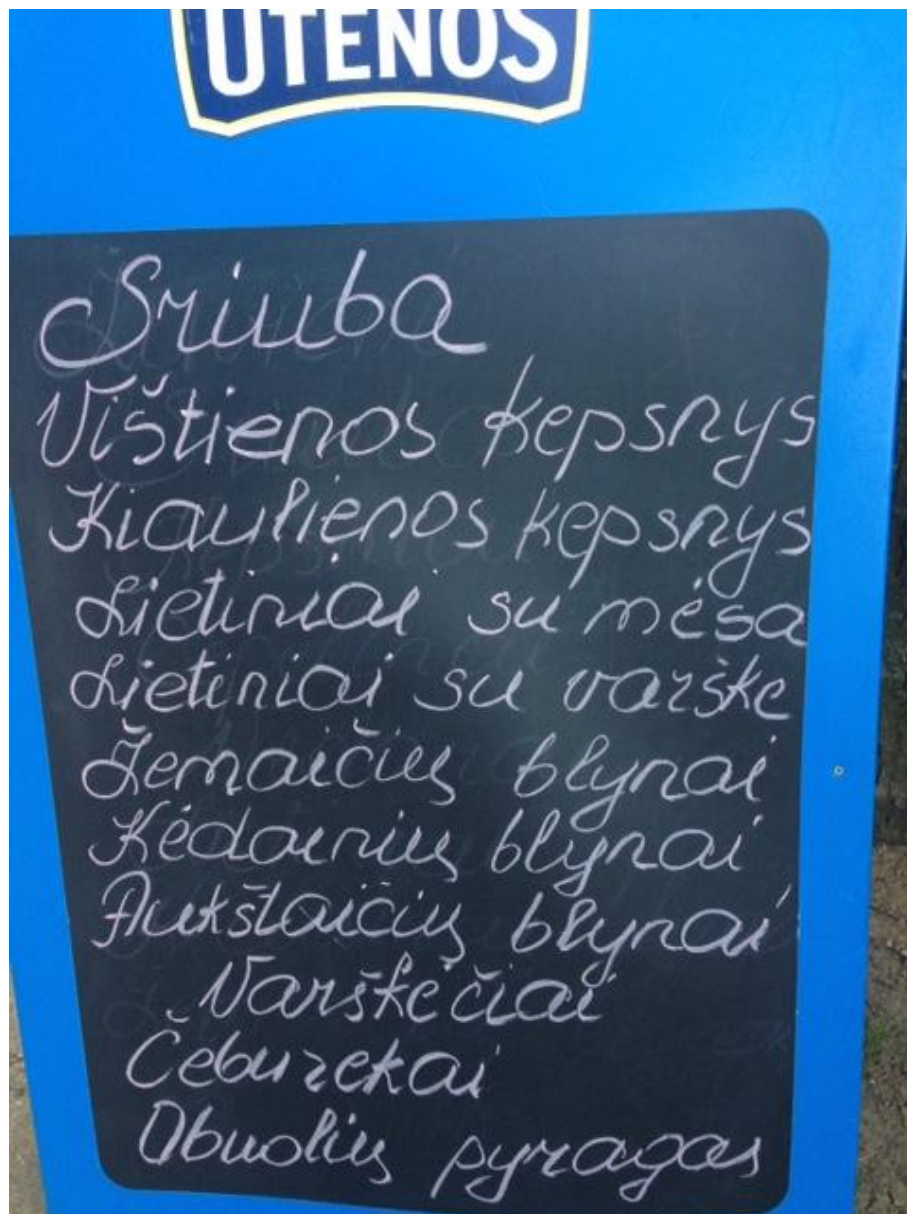 UTENOS
Sriuba
Vištienos kepsnys
Kiaulienos kepsnys
Lietiniai su mėsa
Lietiniai su varške
Žemaičių blynai
Kėdainių blynai
Aukštaičių blynai
Varškėčiai
Čeburekai
Obuolių pyragas